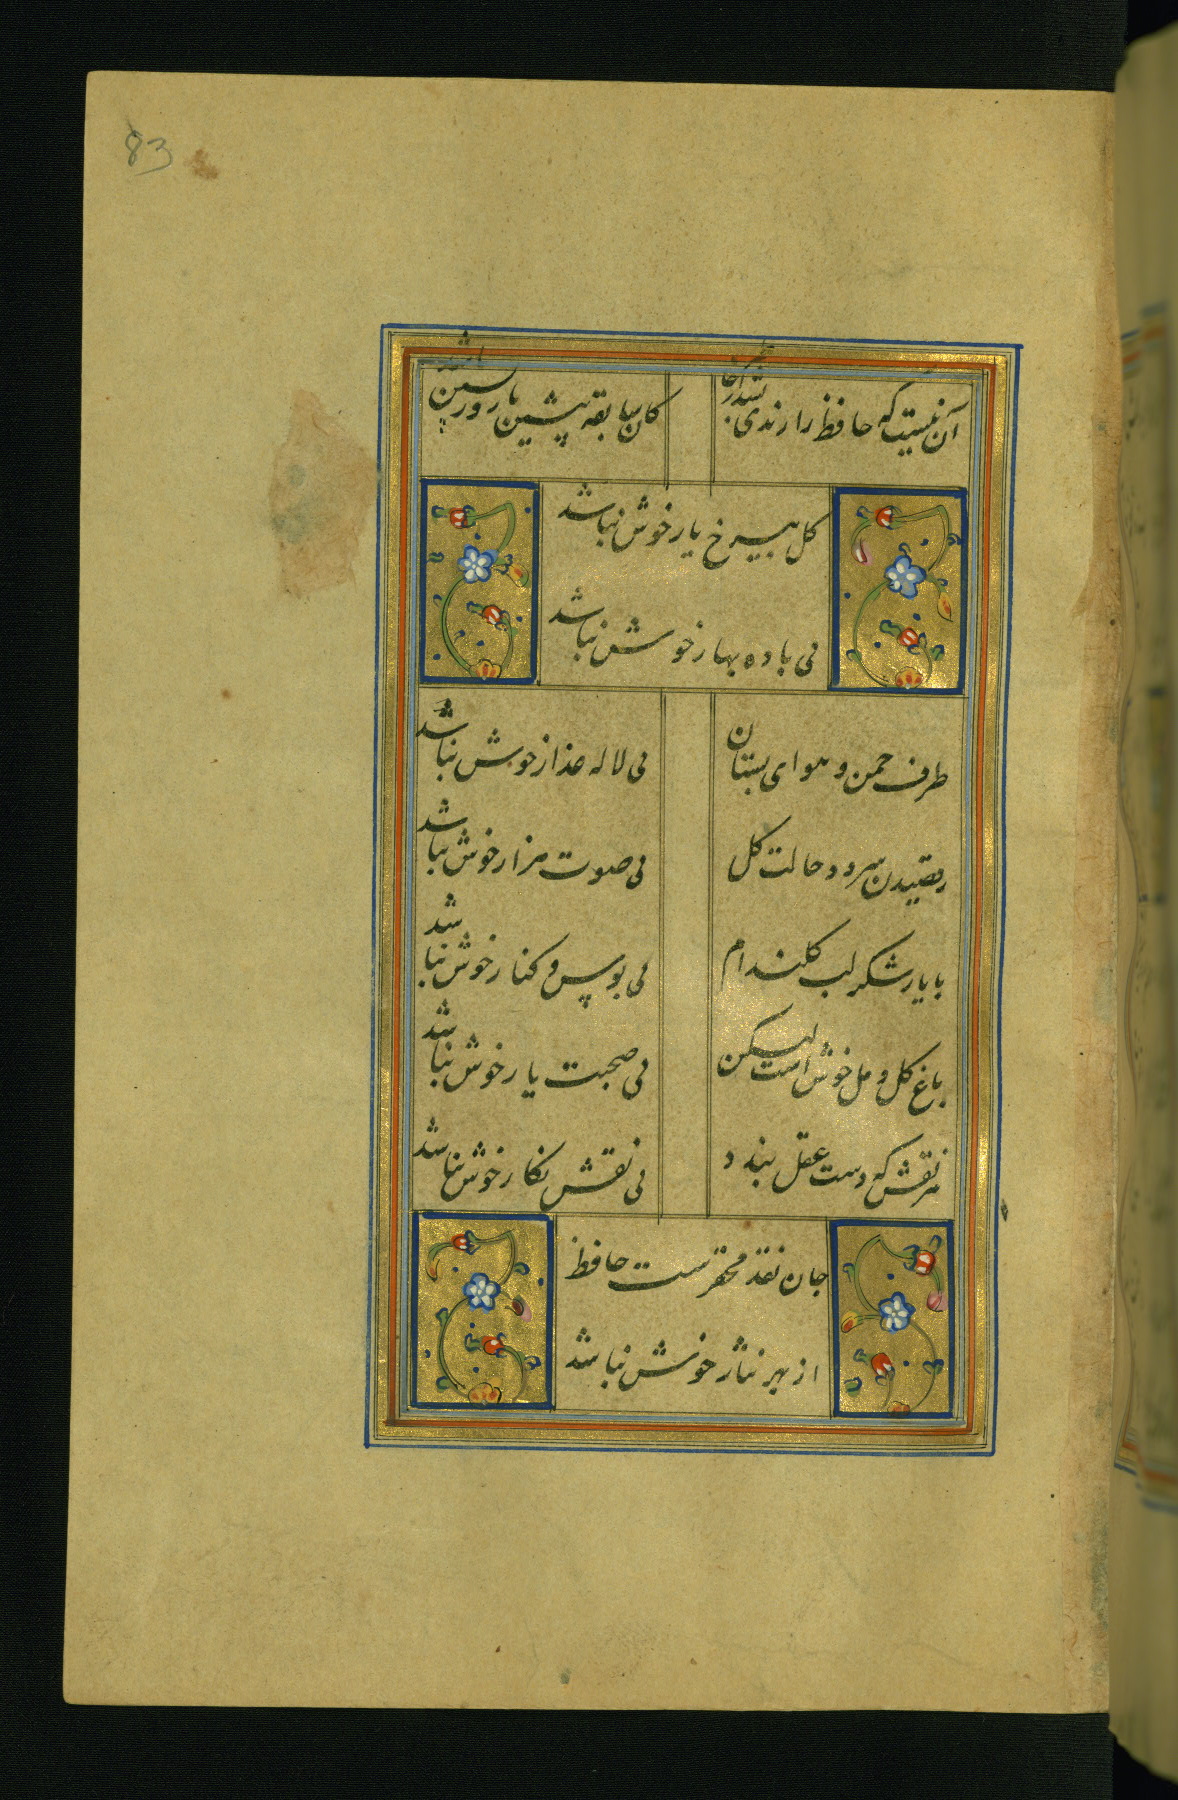 83
آن نیست که حافظ را رندی بشد از خاطر
کان سابقه پیشین تا روز پسین باشد
کل بی رخ یار خوش نباشد
بی باده بهار خوش نباشد
طرف چمن و هوای بستان
بی لاله عذار خوش نباشد
رقصیدن سرو و حالت کل
بی صوت هزار خوش نباشد
با یار شکر لب کلندام
بی بوس و کنار خوش نباشد
باغ کل و مل خوش است لیکن
بی صحبت یار خوش نباشد
هر نقش که دست عقل بندد
بی نقش نکار خوش نباشد
جان نقد محقرست حافظ
از بهر نثار خوش نباشد